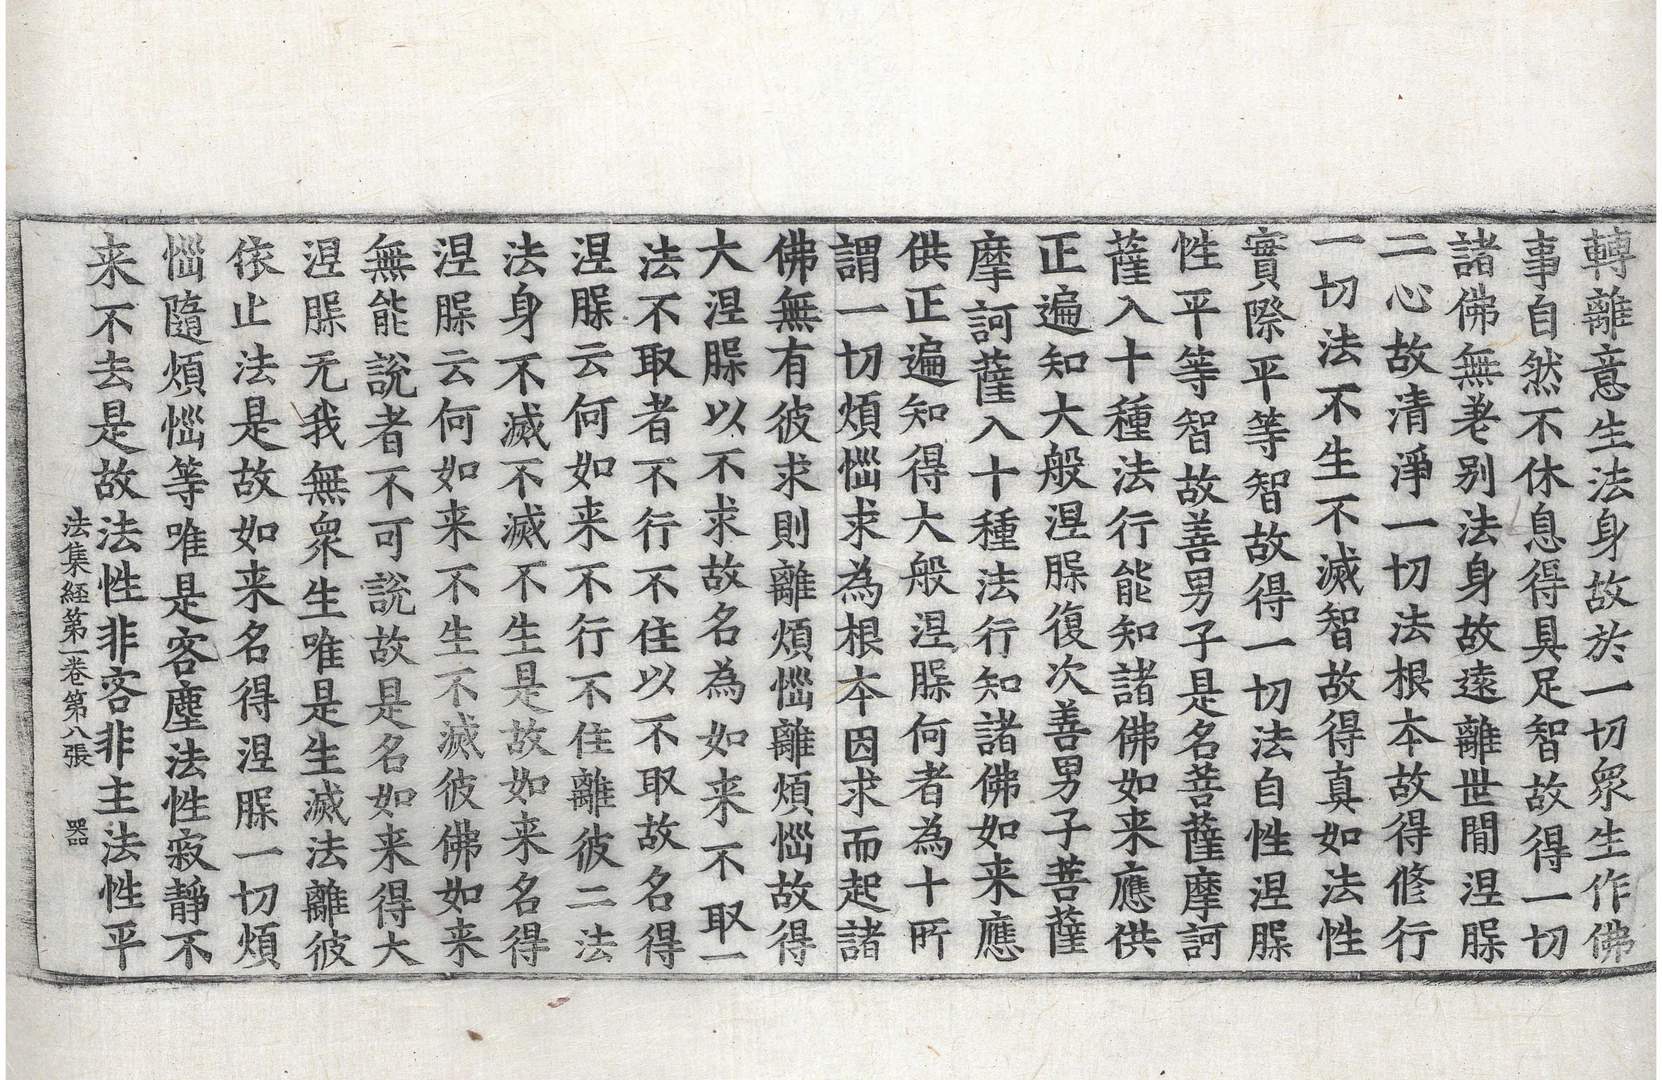 轉離意生法身故於一切眾生作佛
事自然不休息得具足智故得一切
諸佛無差别法身故遠離世間涅脲
二心故清淨一切法根本故得修行
一切法不生不滅智故得真如法性
實際平等智故得一切法自性涅脲
性平等智故善男子是名菩薩摩訶
薩入十種法行能知諸佛如来應供
正遍知大般涅脲復次善男子菩薩
摩訶薩入十種法行知諸佛如来應
供正遍知得大般涅脲何者為十所
謂一切煩惱求為根本因求而起諸
佛無有彼求則離煩惱離煩惱故得
大涅脲以不求故名為如来不取一
法不取者不行不住以不取故名得
涅脲云何如来不行不住離彼二法
法身不滅不滅不生是故如来名得
涅脲云何如来不生不滅彼佛如来
無能說者不可說故是名如来得大
涅脲无我無眾生唯是生滅法離彼
依止法是故如来名得涅脲一切煩
惱隨煩惱等唯是客塵法性寂靜不
来不去是故法性非客非主法性平
法集経第一卷第八張 器